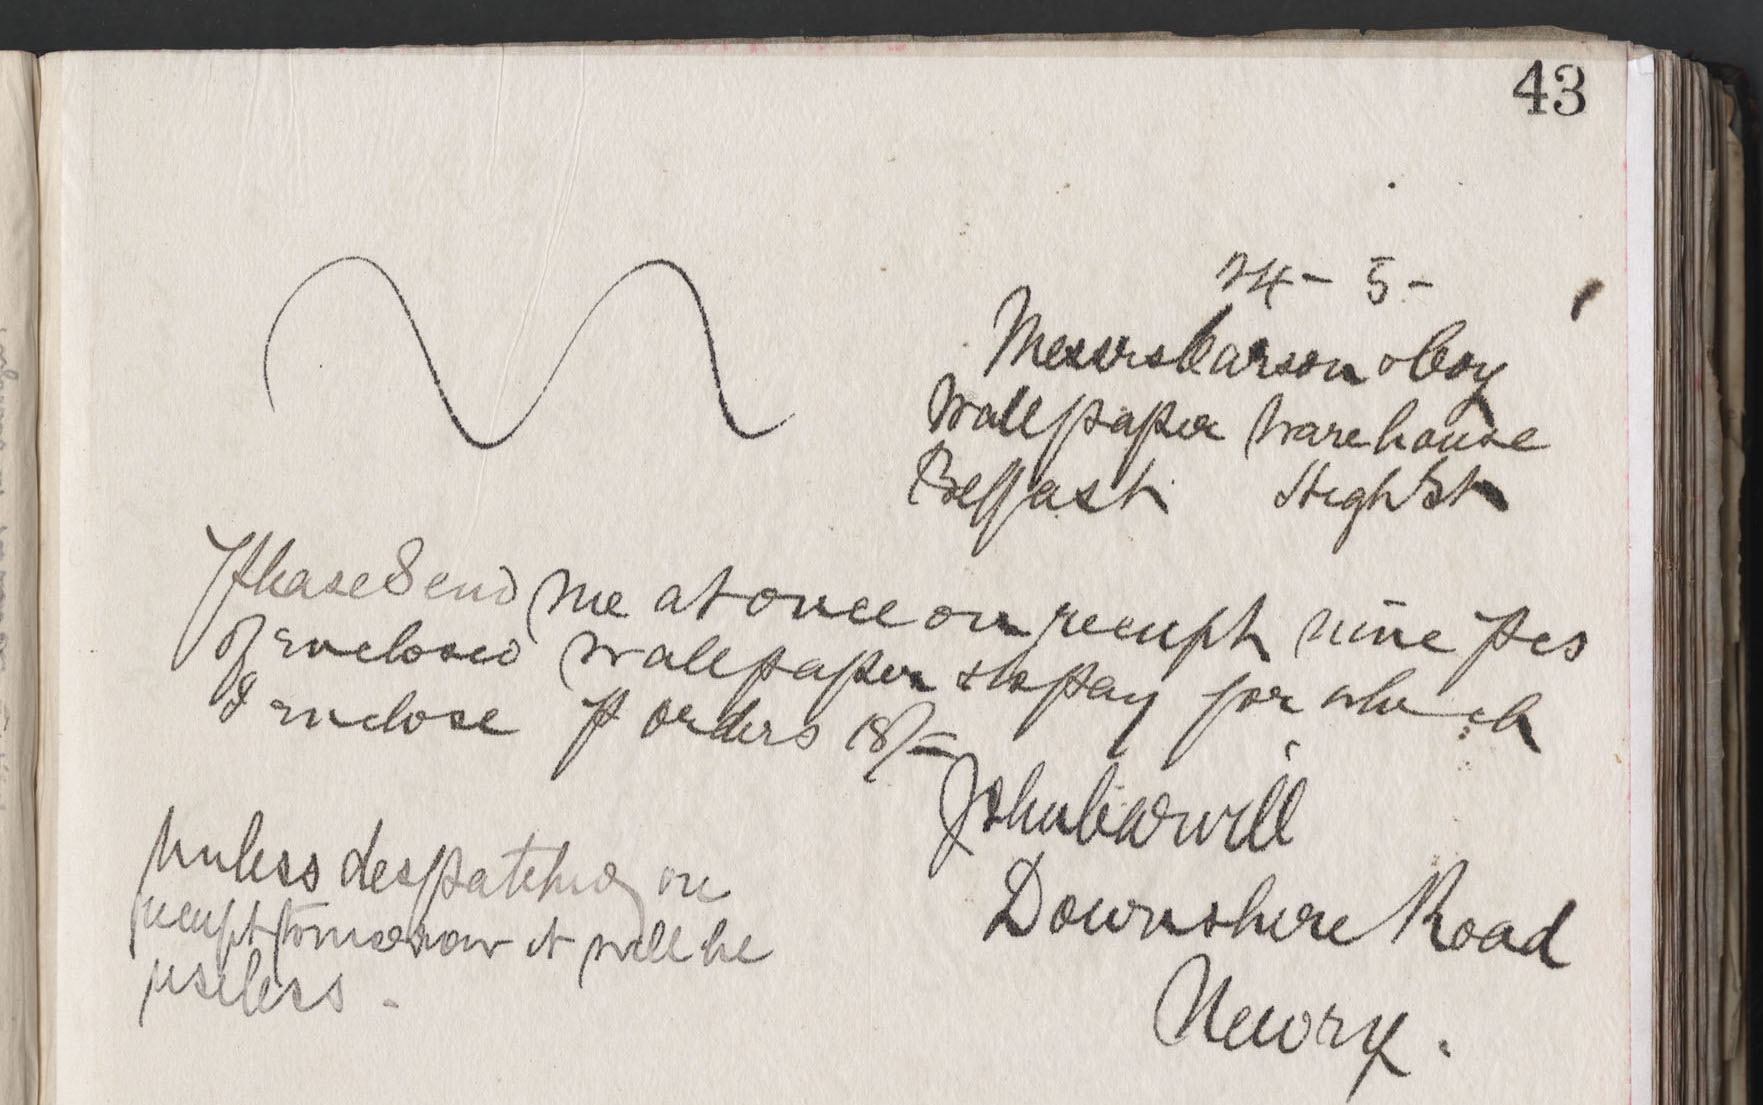 43
24 - 5 -
Messrs Carson & Coy
Wallpaper Warehouse
Belfast High St
Please Send me at once on receipt nine pcs
of enclosed wallpaper & to pay for which
I enclose P orders 18/-
John
Downshire Road
Newry.
Unless despatched on
receipt tomorrow it will be
useless -